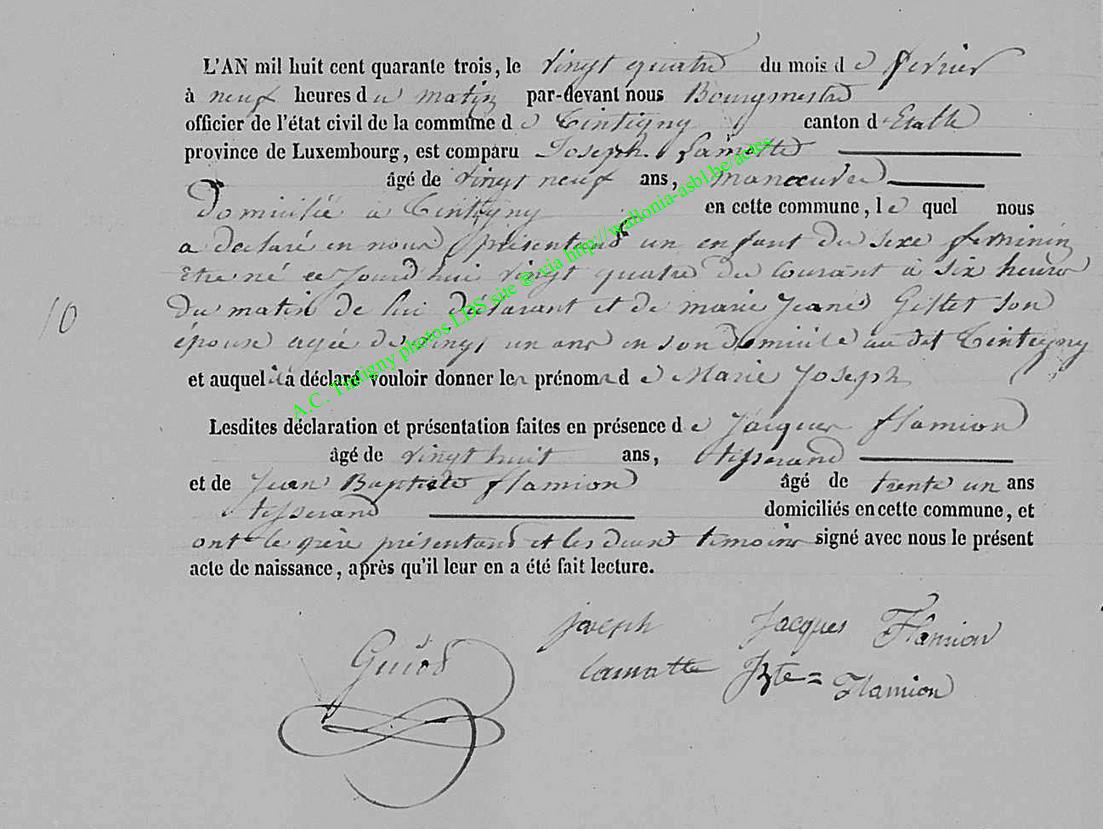 L'AN mil huit cent quarante trois, le vingt quatre du mois d e fevrier
à neuf heures d u matin par-devant nous Bourgmestre
officier de l'état civil de la commune d e Tintigny canton d'Etalle
province de Luxembourg, est comparu Joseph Lamotte
âgé de vingt neuf ans, manœuvre
Domicilié à Tintigny en cette commune, l e quel nous
a déclaré en nous présentant un enfant du sexe feminin
Etre né ce jourd'hui vingt quatre du courant à six heures
du matin de lui déclarant et de marie Jeanne Gillet son
10
épouse agée de vingt un ans en son domicile au dit Tintigny
et auquel il a déclaré vouloir donner les prénoms d e Marie Joseph
Lesdites déclaration et présentation faites en présence d e Jacques flamion
âgé de vingt huit ans, tisserand
et de Jean Baptiste flamion âgé de trente un ans
tisserand domiciliés en cette commune, et
ont le père présentant et les deux temoins signé avec nous le présent
acte de naissance, après qu'il leur en a été fait lecture.
joseph Jacques Flamion
Lamotte JBte = Flamion
A.C. Tintigny photos LDS site @ via http://wallonia-asbl.be/actes